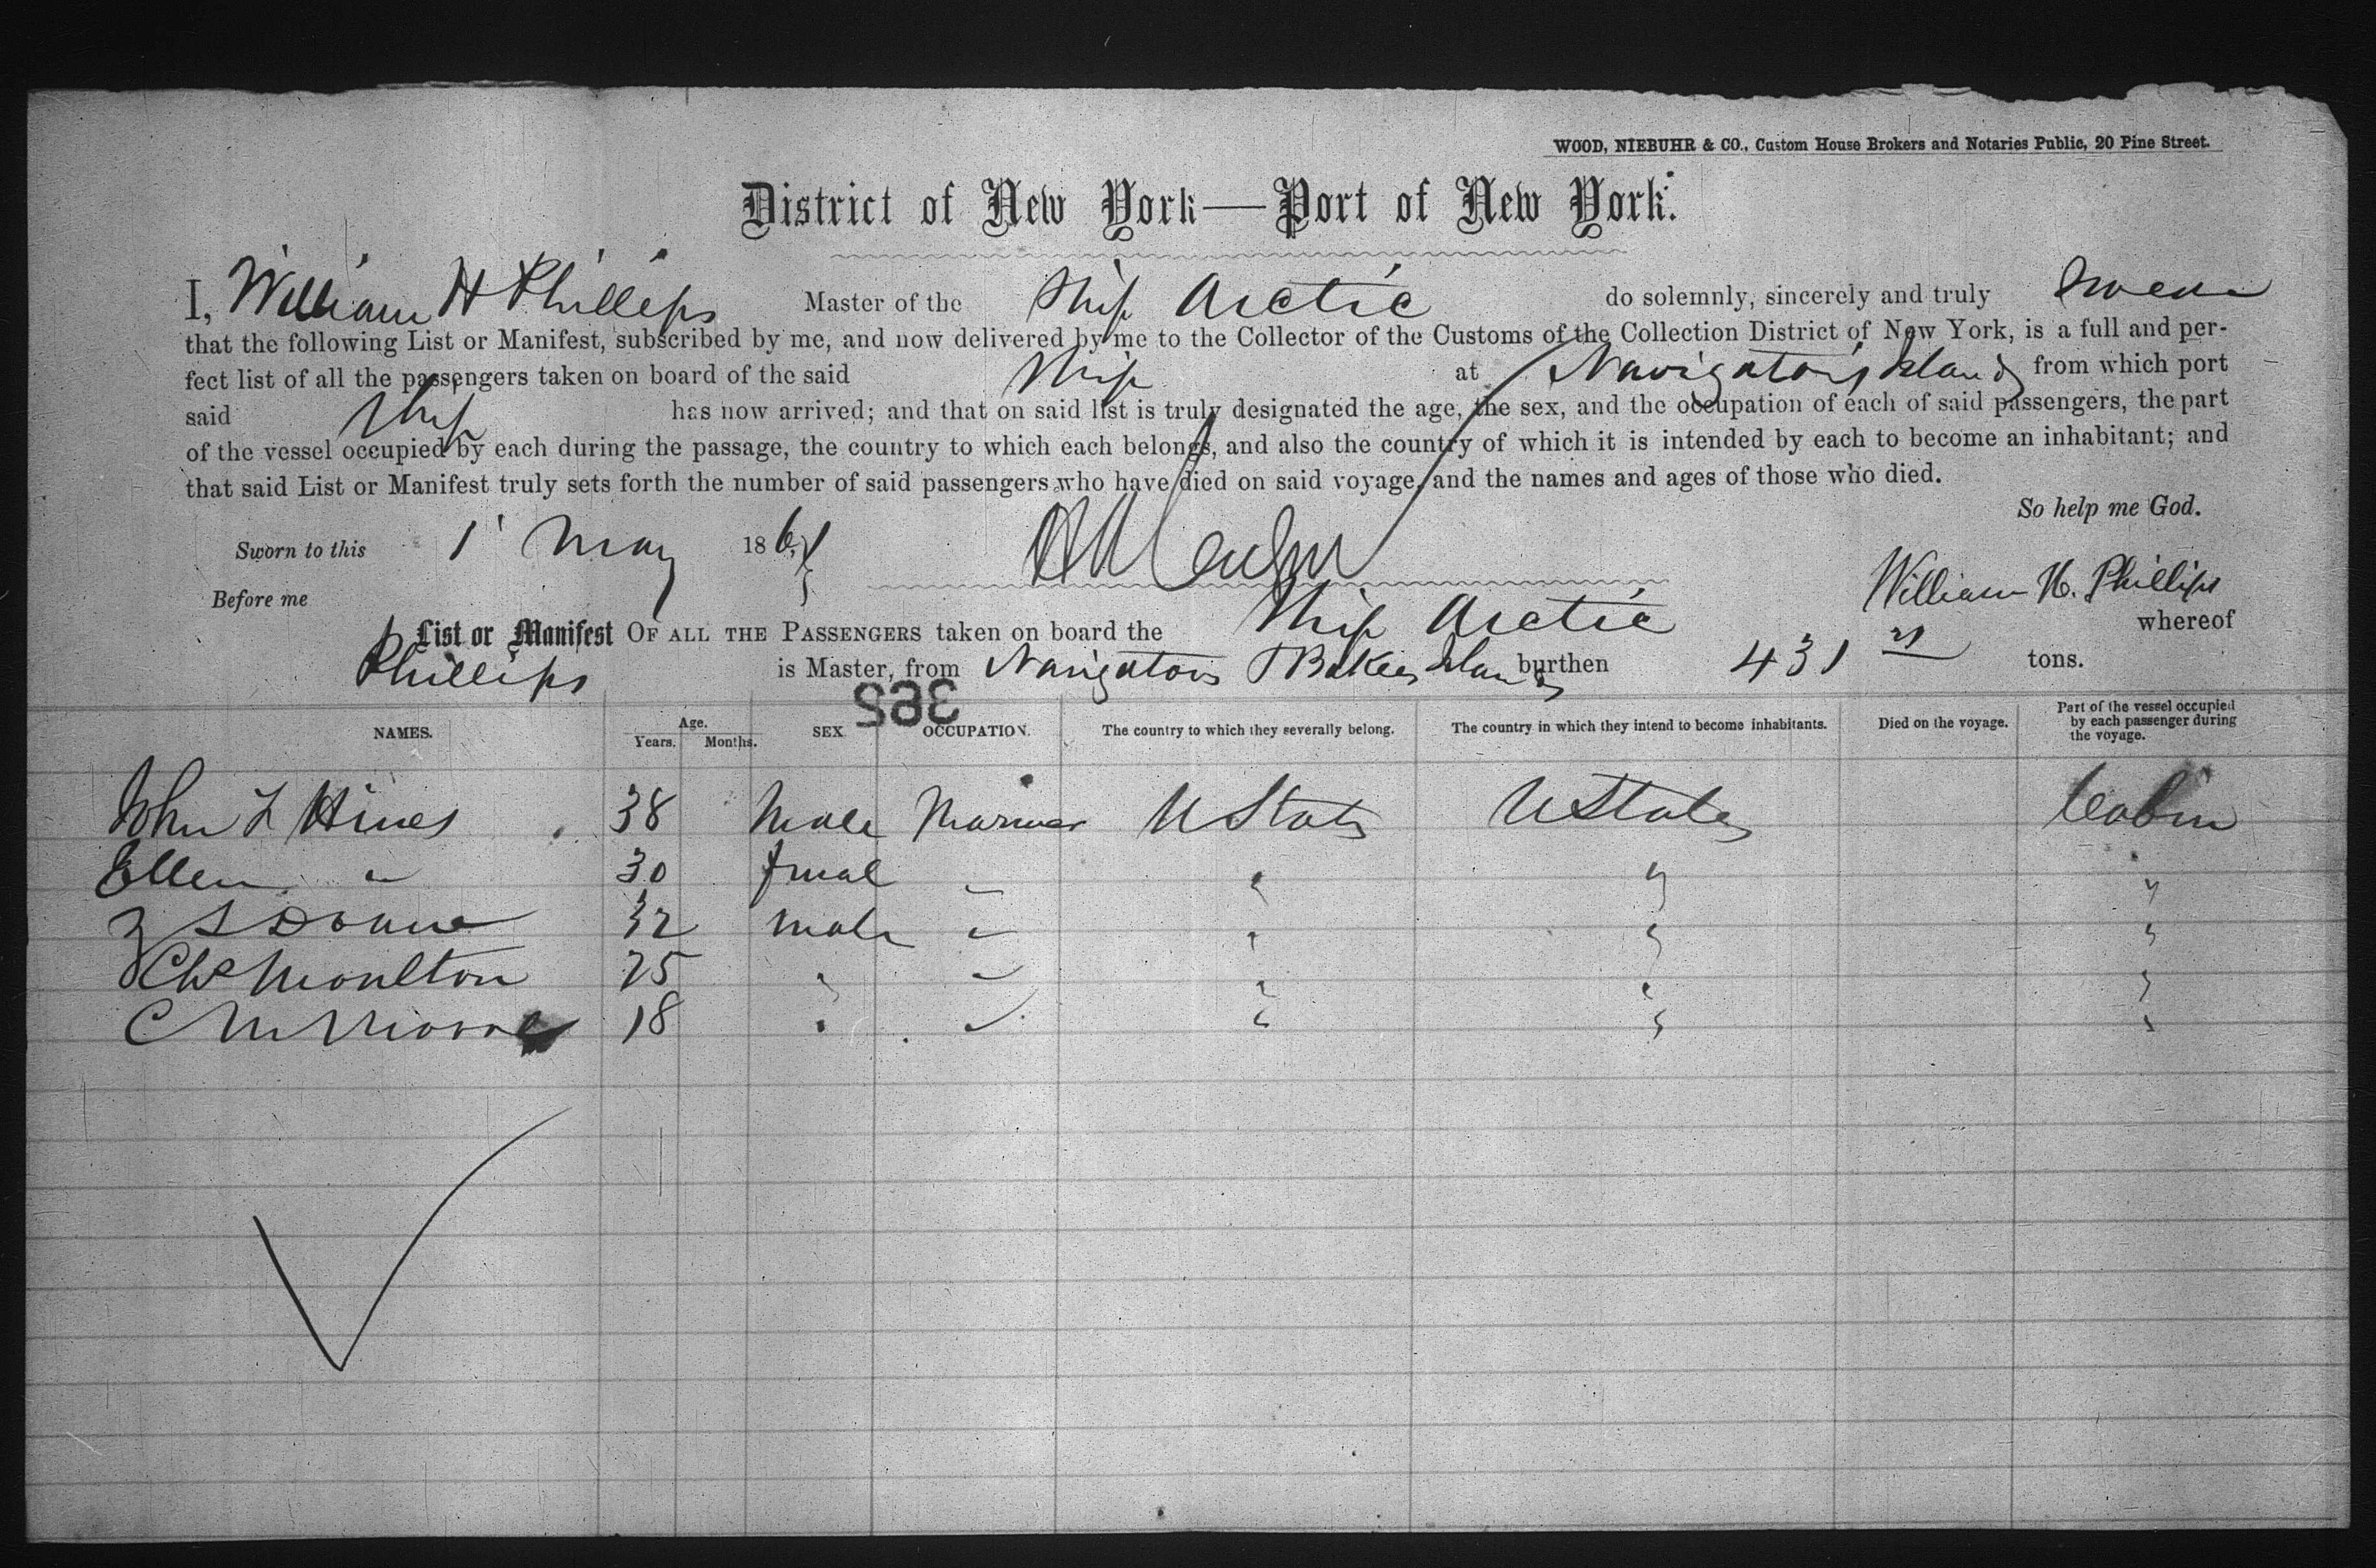 WOOD, NIEBUHR & CO., Custom House Brokers and Notaries Public, 20 Pine Street.
District of New York—Port of New York.
I, William H Phillips Master of the Ship Arctic do solemnly, sincerely and truly Swear
that the following List or Manifest, subscribed by me, and now delivered by me to the Collector of the Customs of the Collection District of New York, is a full and per-
fect list of all the passengers taken on board of the said Ship at Navigators Islands from which port
said Ship has now arrived; and that on said list is truly designated the age, the sex, and the occupation of each of said passengers, the part
of the vessel occupied by each during the passage, the country to which each belongs, and also the country of which it is intended by each to become an inhabitant; and
that said List or Manifest truly sets forth the number of said passengers who have died on said voyage, and the names and ages of those who died.
So help me God.
Sworn to this 1 May 1861
Before me William H. Phillips
List or Manifest OF ALL THE PASSENGERS taken on board the Ship Arctic whereof
Phillips is Master, from Navigators Bakers Islands burthen 431 tons.
365
NAMES. Age. Years. Months. SEX OCCUPATION. The country to which they severally belong. The country in which they intend to become inhabitants. Died on the voyage. Part of the vessel occupied by each passenger during the voyage.
John L Hines 38 Male Mariner U States U States Cabin
Ellen " 30 femal " " " "
S Doane 32 male " " " "
Chs Moulton 25 " " " " "
C M 18 " " " " "